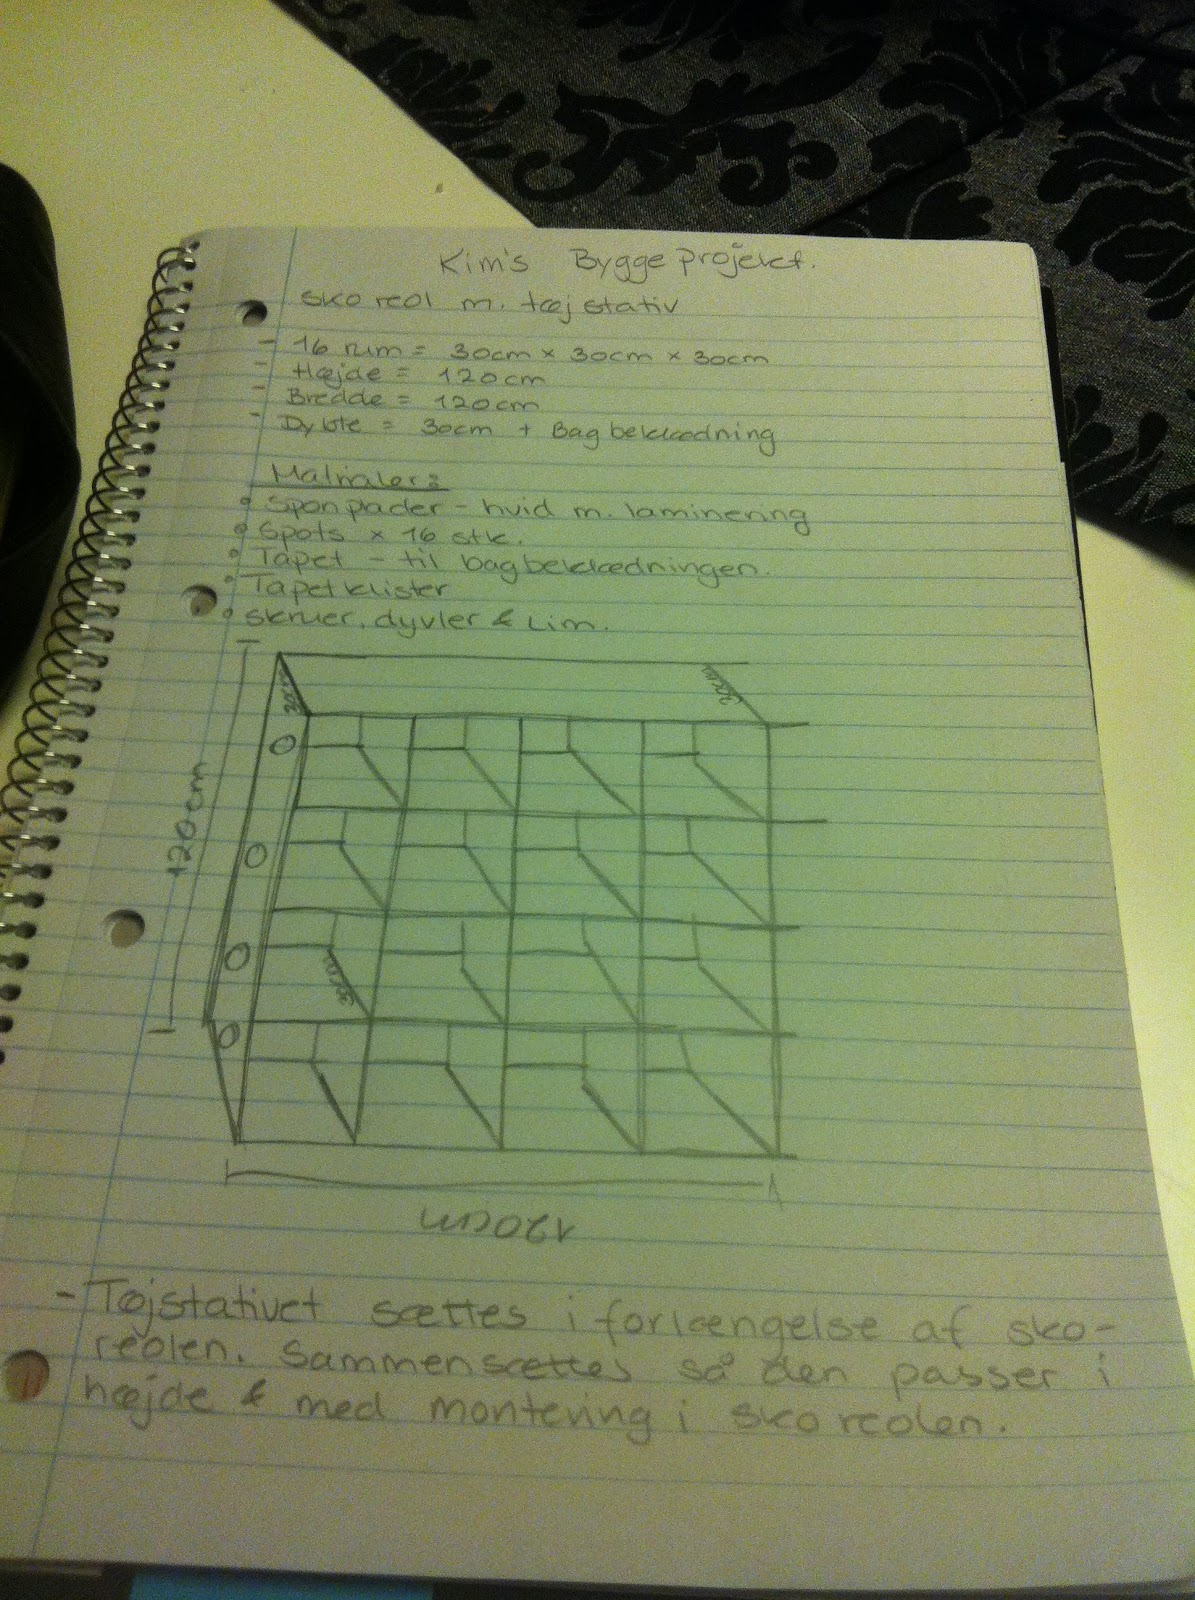 Kim's Byggeprojekt.
Skoreol m. tøjstativ
- 16 rum = 30cm × 30cm × 30cm
- Højde = 120cm
- Bredde = 120cm
- Dybte = 30cm + Bagbeklædning
Matrialer:
Sponplader - hvid m. laminering
Spots × 16 stk.
Tapet - til bagbeklædningen.
Tapetklister
Skruer, dyvler & Lim.
30cm
30cm
120cm
30cm
120cm
- Tøjstativet sættes i forlængelse af sko-
reolen. Sammensættes så den passer i
højde & med montering i skoreolen.